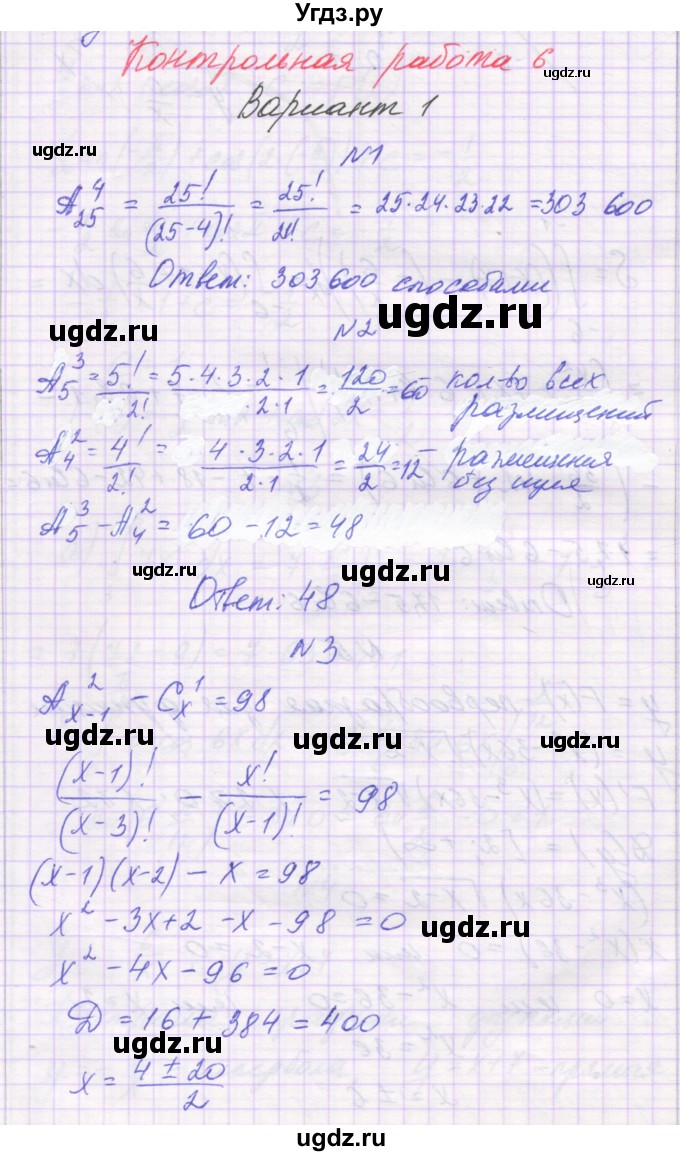 Угдз.ру
Контрольная работа 6
Вариант 1
ugdz.ru ugdz.ru
N1
A₂₅⁴ = 25!/(25-4)! = 25!/21! = 25·24·23·22 = 303 600
Ответ: 303 600 способами
ugdz.ru ugdz.ru
N2
A₅³ = 5!/2! = 5·4·3·2·1/2·1 = 120/2 = 60 – кол-во всех
размещений
ugdz.ru ugdz.ru
A₄² = 4!/2! = 4·3·2·1/2·1 = 24/2 = 12 – размещения
без нуля
A₅³ - A₄² = 60 - 12 = 48
ugdz.ru ugdz.ru ugdz.ru
Ответ: 48
N3
A²ₓ₋₁ - Cₓ¹ = 98
ugdz.ru ugdz.ru ugdz.ru
(x-1)!/(x-3)! - x!/(x-1)! = 98
(x-1)(x-2) - x = 98
x² - 3x + 2 - x - 98 = 0
ugdz.ru ugdz.ru
x² - 4x - 96 = 0
D = 16 + 384 = 400
ugdz.ru ugdz.ru
x = 4 ± 20/2
ugdz.ru